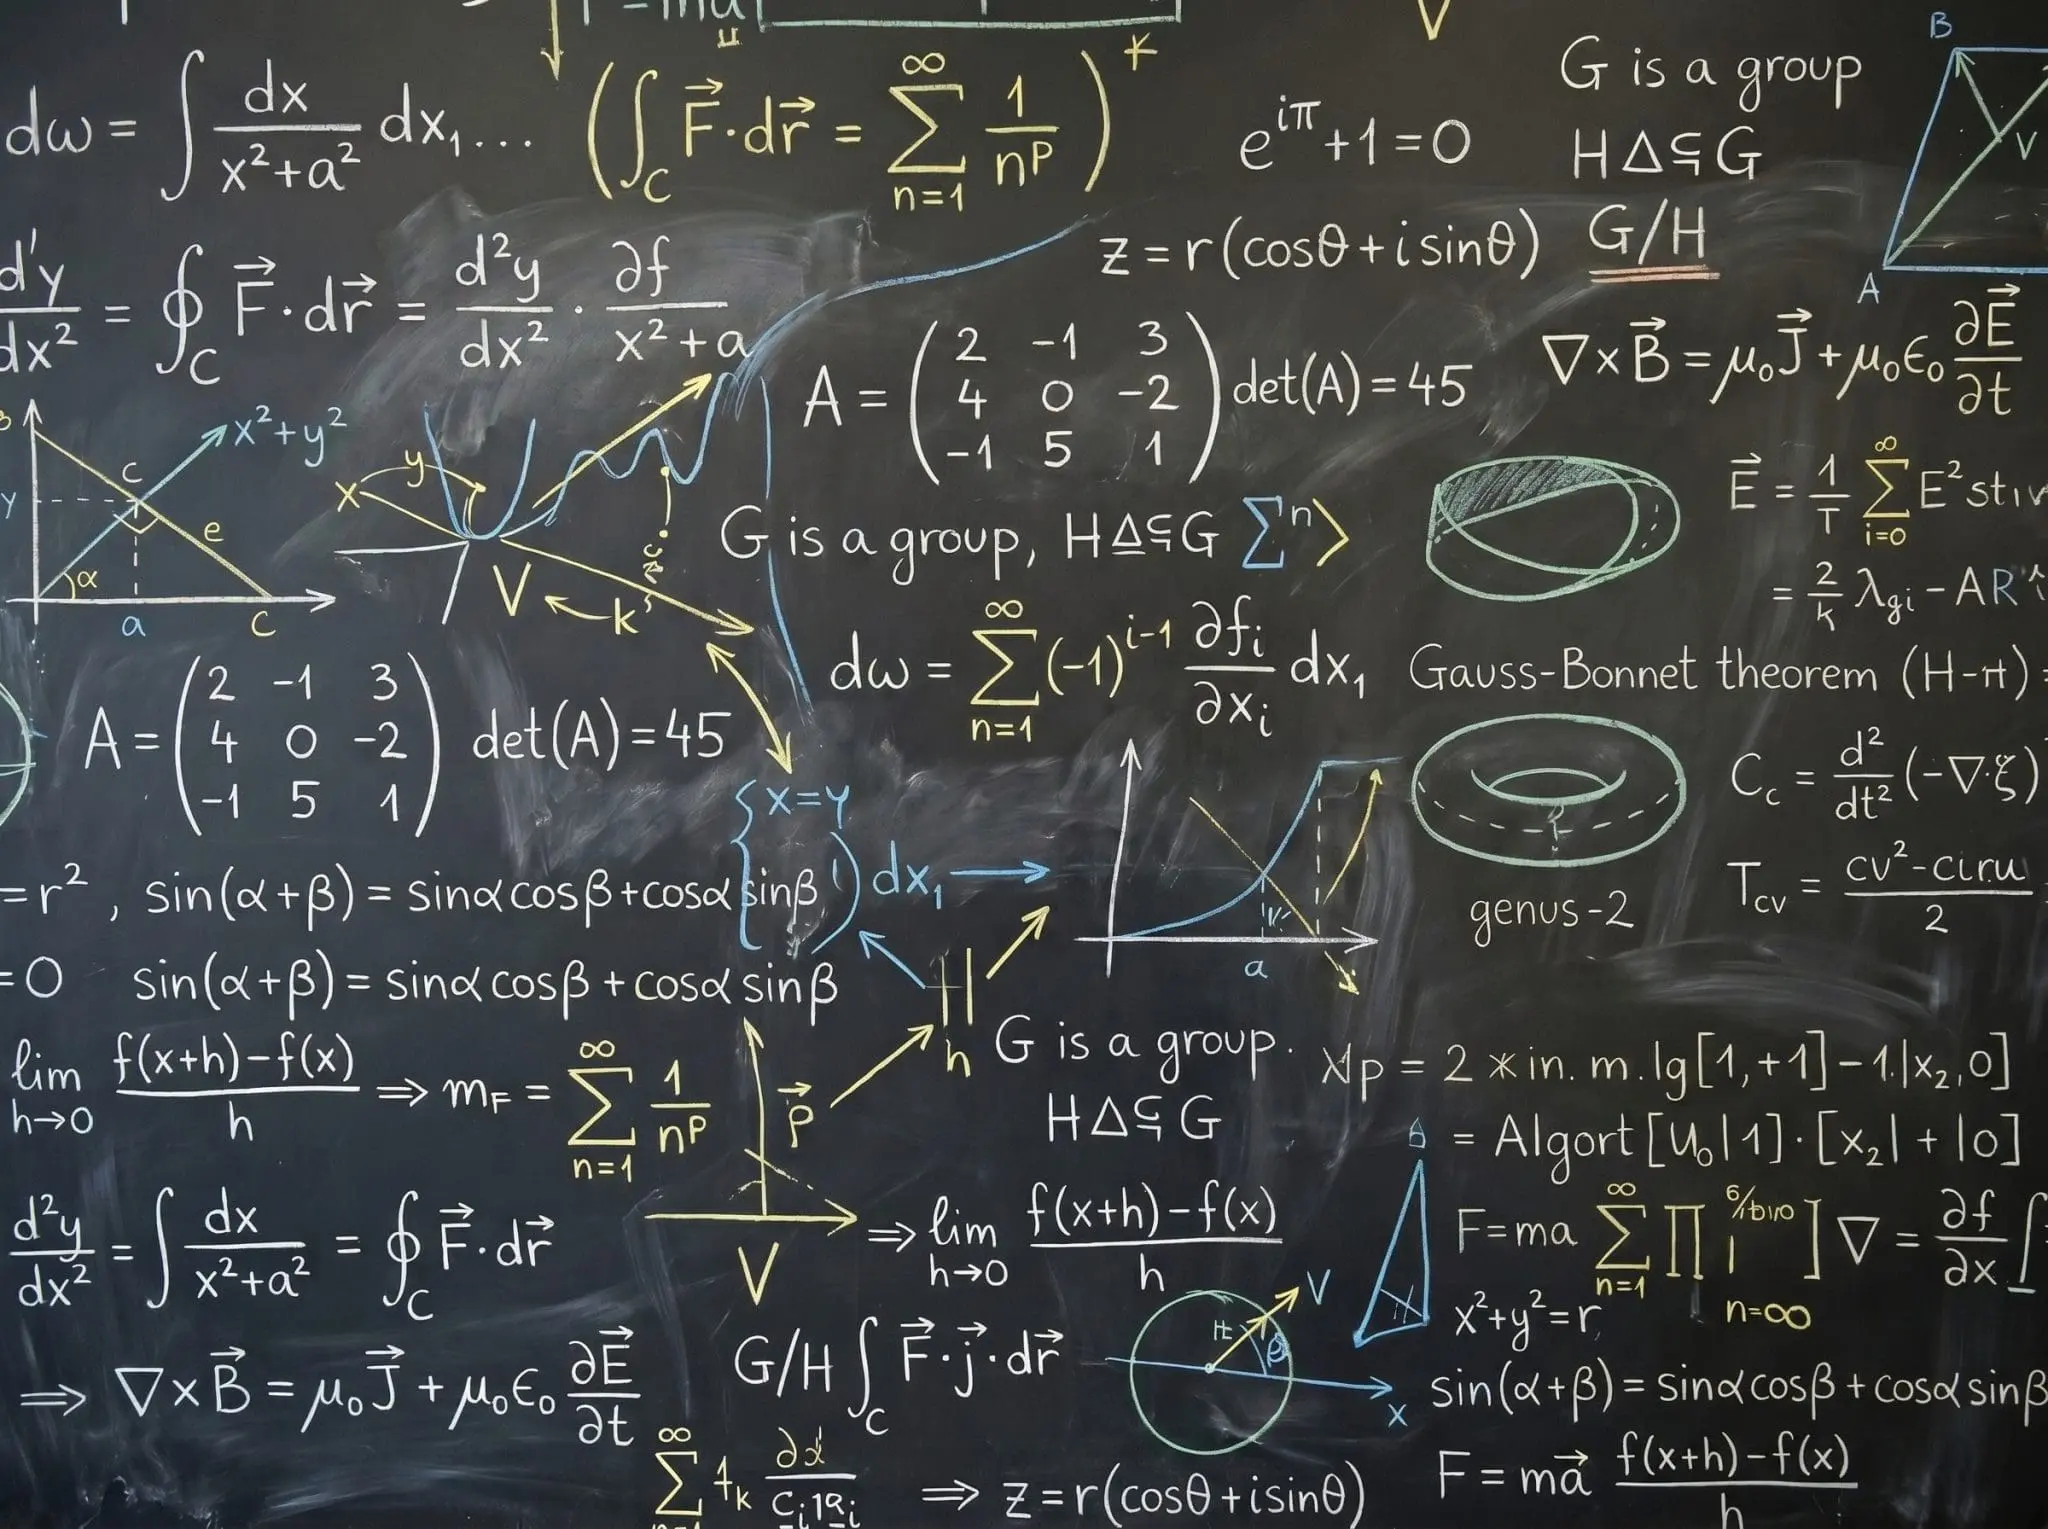 dω = ∫ dx/(x²+a²) dx₁...
(∫_C F⃗·dr⃗ = ∑_{n=1}^{∞} 1/n^p)^K
e^{iπ}+1=0
G is a group
H∆⊊G
G/H
B
V
A
d'y/dx² = ∮_C F⃗·dr⃗ = d²y/dx² · ∂f/(x²+a)
z = r(cosθ+i sinθ)
A = (2 -1 3
4 0 -2
-1 5 1) det(A)=45
∇×B⃗ = μ₀J⃗+μ₀ϵ₀ ∂E⃗/∂t
x²+y²
c
y
e
α
a
c
x
y
V
k
G is a group, H∆⊊G ∑ⁿ>
E⃗ = 1/T ∑_{i=0}^{∞} E²
= 2/k λ_{gi} - AR
dω = ∑_{n=1}^{∞} (-1)^{i-1} ∂f_i/∂x_i dx₁
Gauss-Bonnet theorem (H-π) =
A = (2 -1 3
4 0 -2
-1 5 1) det(A)=45
{x=y
dx₁
a
genus-2
C_c = d²/dt² (-∇·ξ)
T_{cv} = cv²-/2
=r², sin(α+β) = sinαcosβ+cosα sinβ
=0 sin(α+β) = sinαcosβ+cosα sinβ
h
lim_{h→0} (f(x+h)-f(x))/h ⇒ m_F = ∑_{n=1}^{∞} 1/n^p
p⃗
V
G is a group.
H∆⊊G
p = 2 * in. m. lg[1,+1]-1.|x₂,0]
= Algort[u₀|1]·[x₂|+|0]
d²y/dx² = ∫ dx/(x²+a²) = ∮_C F⃗·dr⃗
⇒ lim_{h→0} (f(x+h)-f(x))/h
F=ma ∑_{n=1}^{∞} ∏ ] ∇ = ∂f/∂x ∫
n=∞
x²+y²=r
V
β
x
⇒ ∇×B⃗ = μ₀J⃗+μ₀ϵ₀ ∂E⃗/∂t
G/H ∫_C F⃗·j⃗·dr⃗
sin(α+β) = sinαcosβ+cosα sinβ
⇒ z=r(cosθ+isinθ)
F = ma⃗ (f(x+h)-f(x))/h